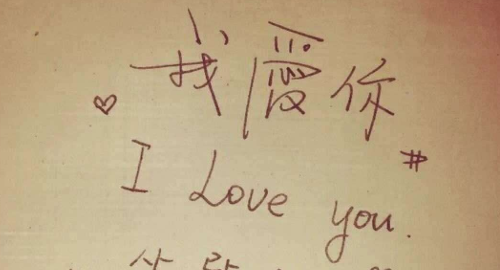 我愛你
I Love you.